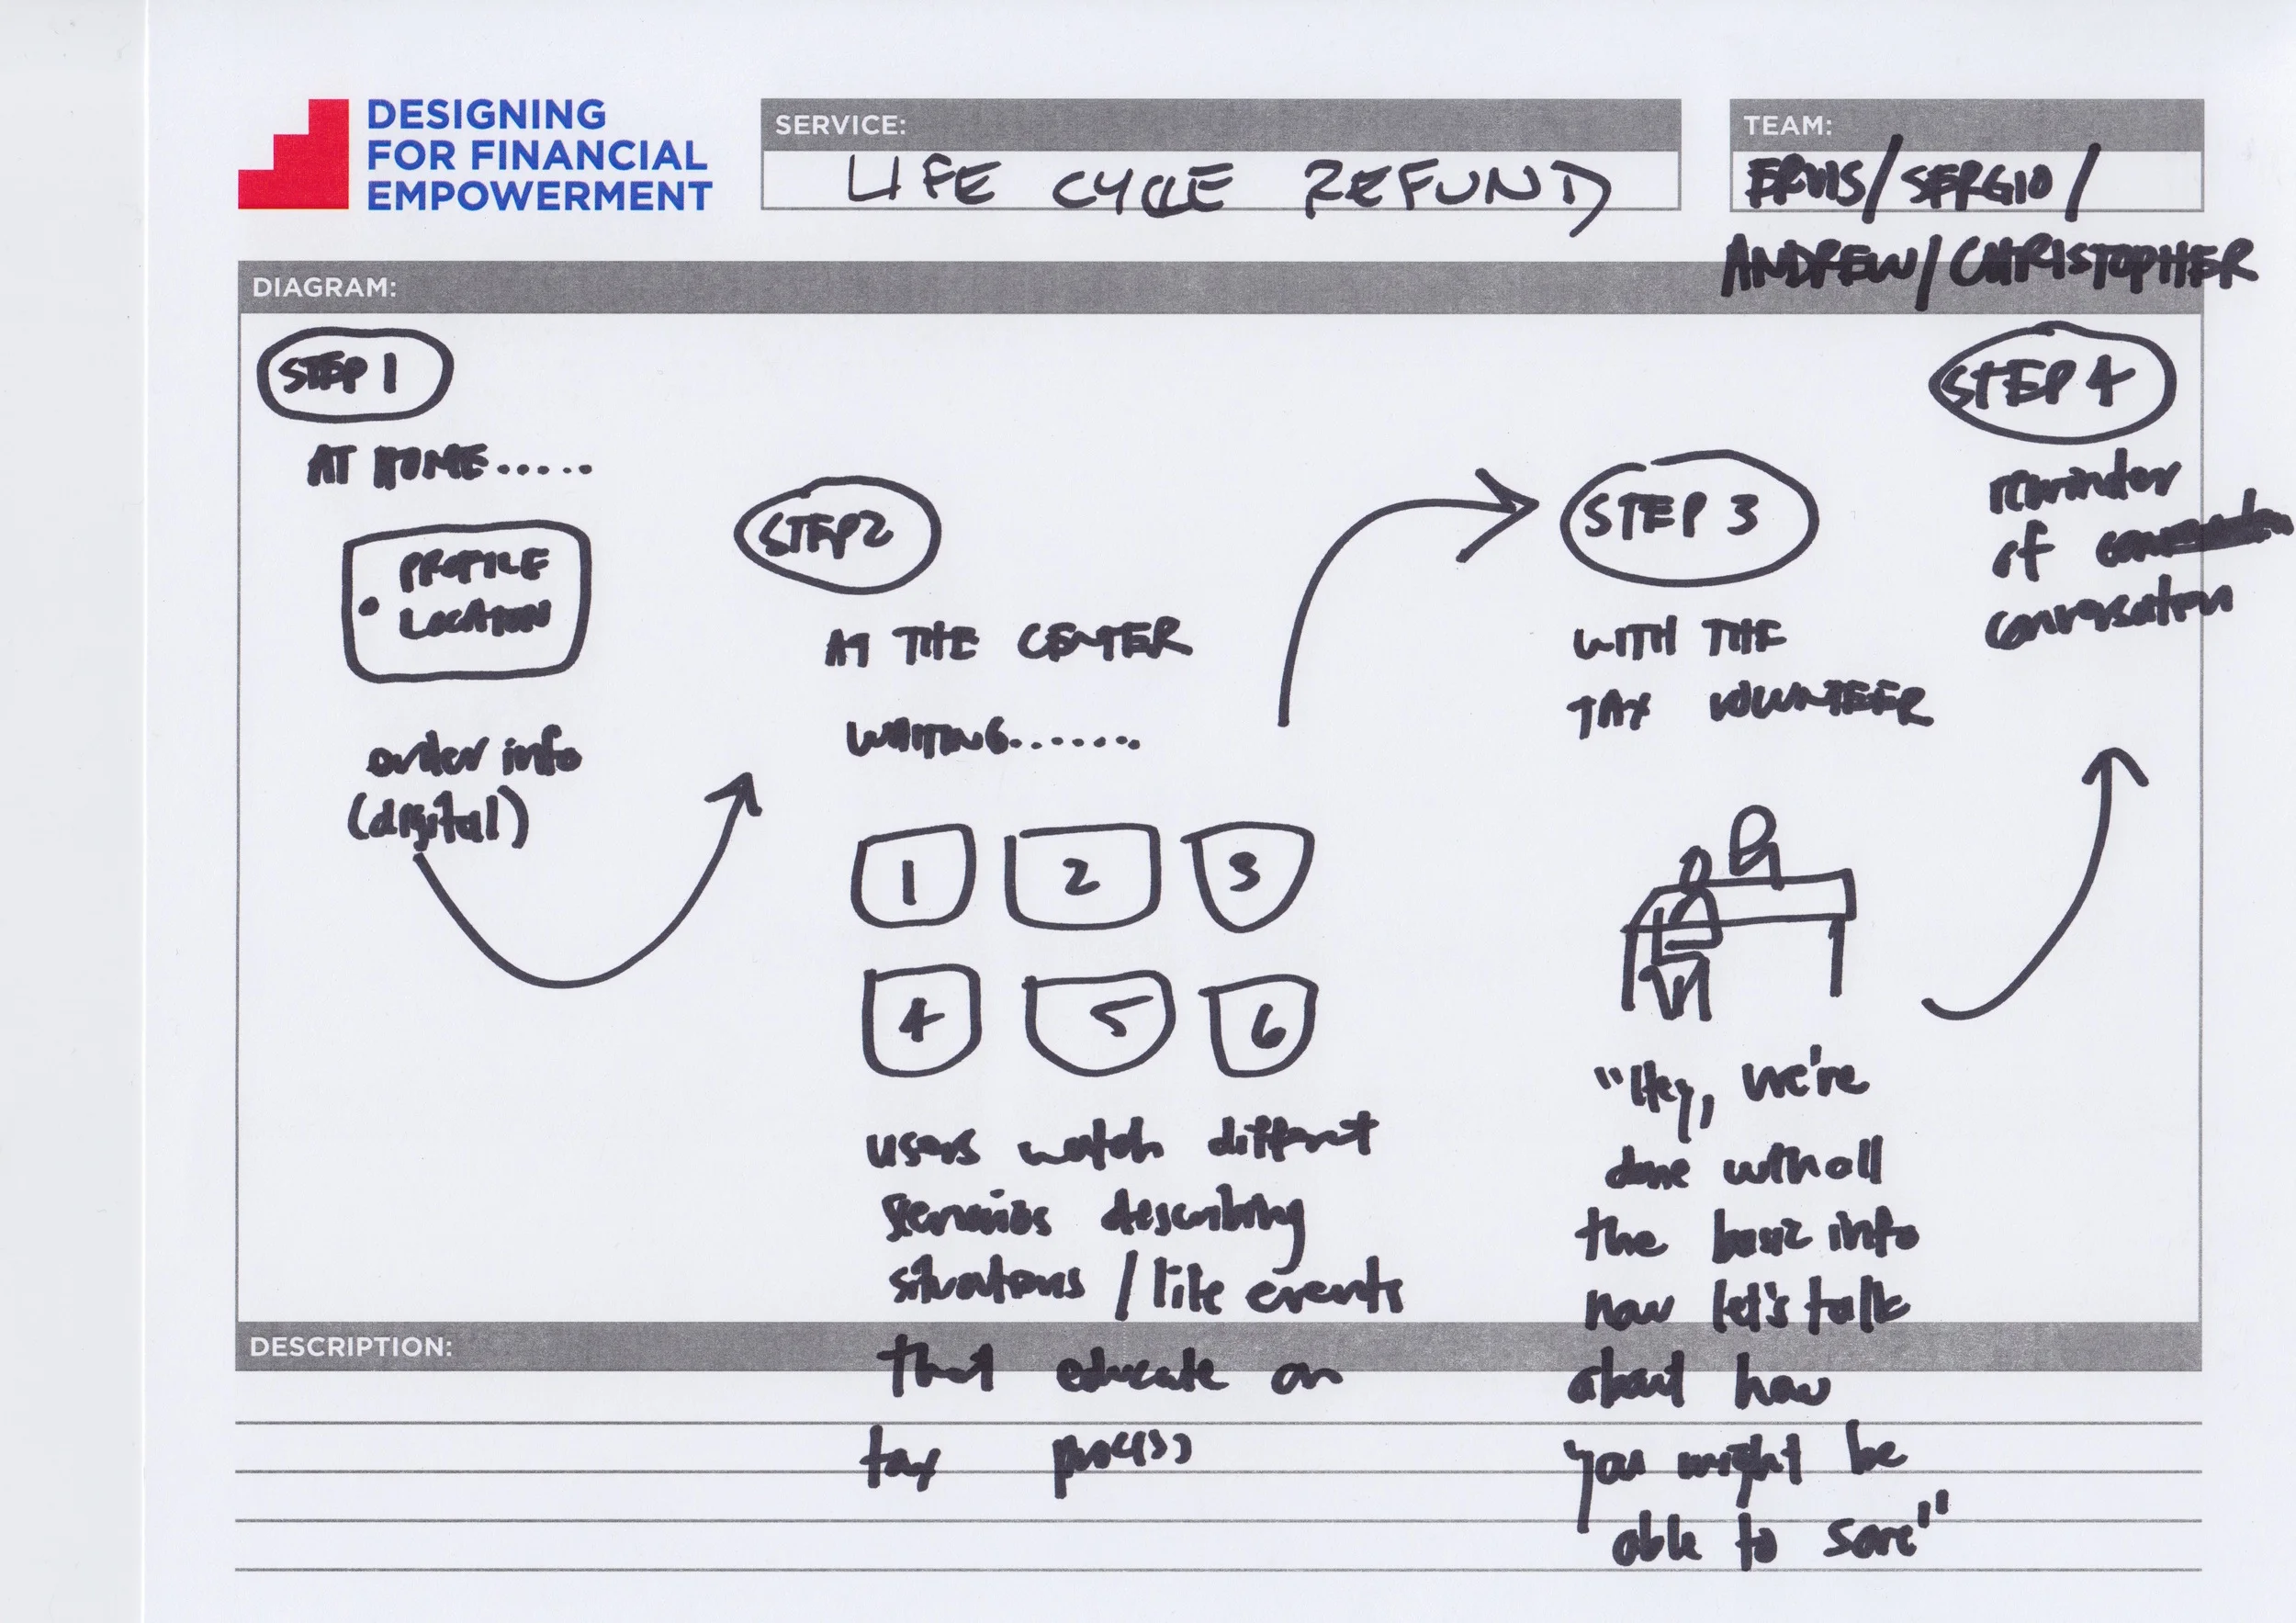 DESIGNING
FOR FINANCIAL
EMPOWERMENT
SERVICE:
LIFE CYCLE REFUND
TEAM:
ERVIS/SERGIO/
ANDREW/CHRISTOPHER
DIAGRAM:
STEP 1
AT HOME.....
• PROFILE
LOCATION
order info
(digital)
STEP 2
AT THE CENTER
WAITING.......
1 2 3
4 5 6
users watch different
scenarios describing
situations / life events
that educate on
tax process
STEP 3
WITH THE
TAX VOLUNTEER
"Hey, we're
done with all
the basic info
now let's talk
about how
you might be
able to save"
STEP 4
reminder
of
conversation
DESCRIPTION: